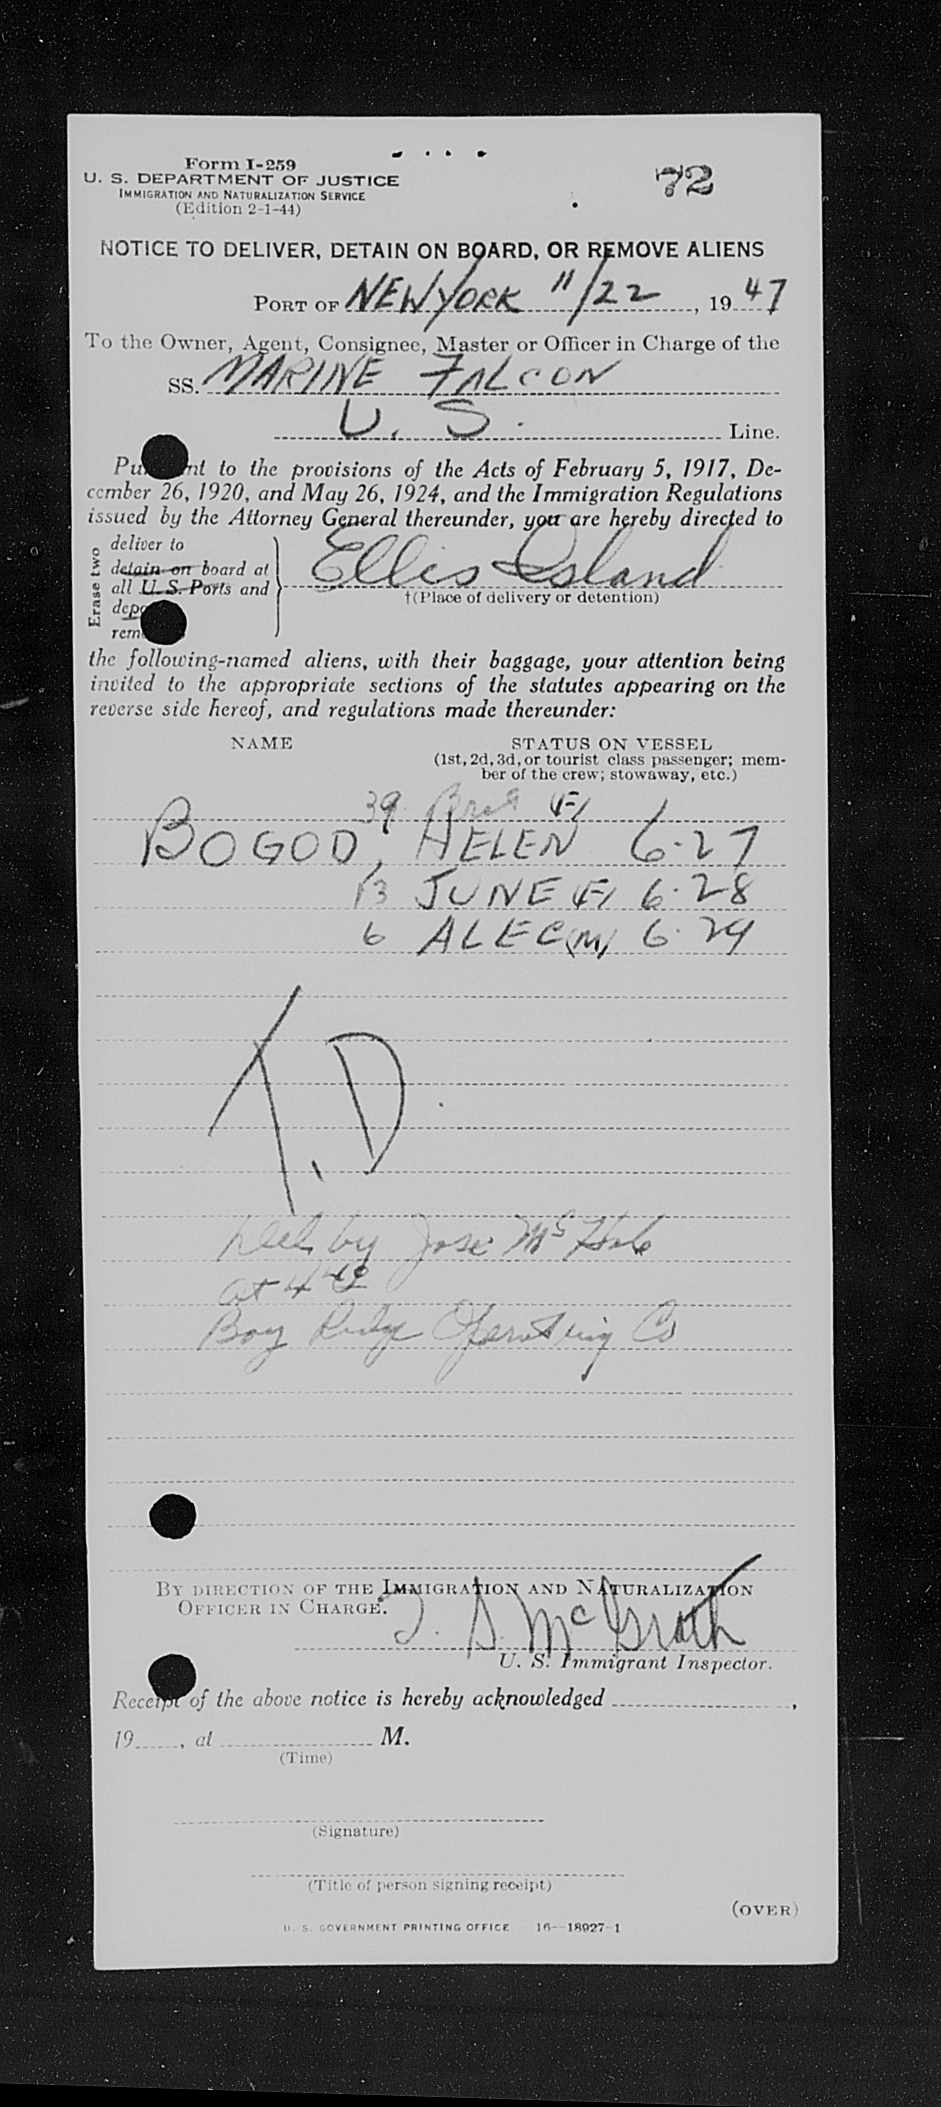 Form I-259
U. S. DEPARTMENT OF JUSTICE
IMMIGRATION AND NATURALIZATION SERVICE
(Edition 2-1-44)
72
NOTICE TO DELIVER, DETAIN ON BOARD, OR REMOVE ALIENS
PORT OF NEW YORK 11/22, 1947
To the Owner, Agent, Consignee, Master or Officer in Charge of the
SS. MARINE FALCON
U. S. Line.
to the provisions of the Acts of February 5, 1917, De-
cember 26, 1920, and May 26, 1924, and the Immigration Regulations
issued by the Attorney General thereunder, you are hereby directed to
Erase two
deliver to
detain on board at
all U. S. Ports and
Ellis Island
†(Place of delivery or detention)
the following-named aliens, with their baggage, your attention being
invited to the appropriate sections of the statutes appearing on the
reverse side hereof, and regulations made thereunder:
NAME STATUS ON VESSEL
(1st, 2d, 3d, or tourist class passenger; mem-
ber of the crew; stowaway, etc.)
39 (F)
BOGOD, HELEN 6-27
13 JUNE (F) 6-28
6 ALEC (M) 6-29
T.D.
by Mc
at 4
Bay Ridge Operating Co
BY DIRECTION OF THE IMMIGRATION AND NATURALIZATION
OFFICER IN CHARGE.
McGrath
U. S. Immigrant Inspector.
Receipt of the above notice is hereby acknowledged ,
19 , at M.
(Time)
(Signature)
(Title of person signing receipt)
(OVER)
U. S. GOVERNMENT PRINTING OFFICE 16—18927-1